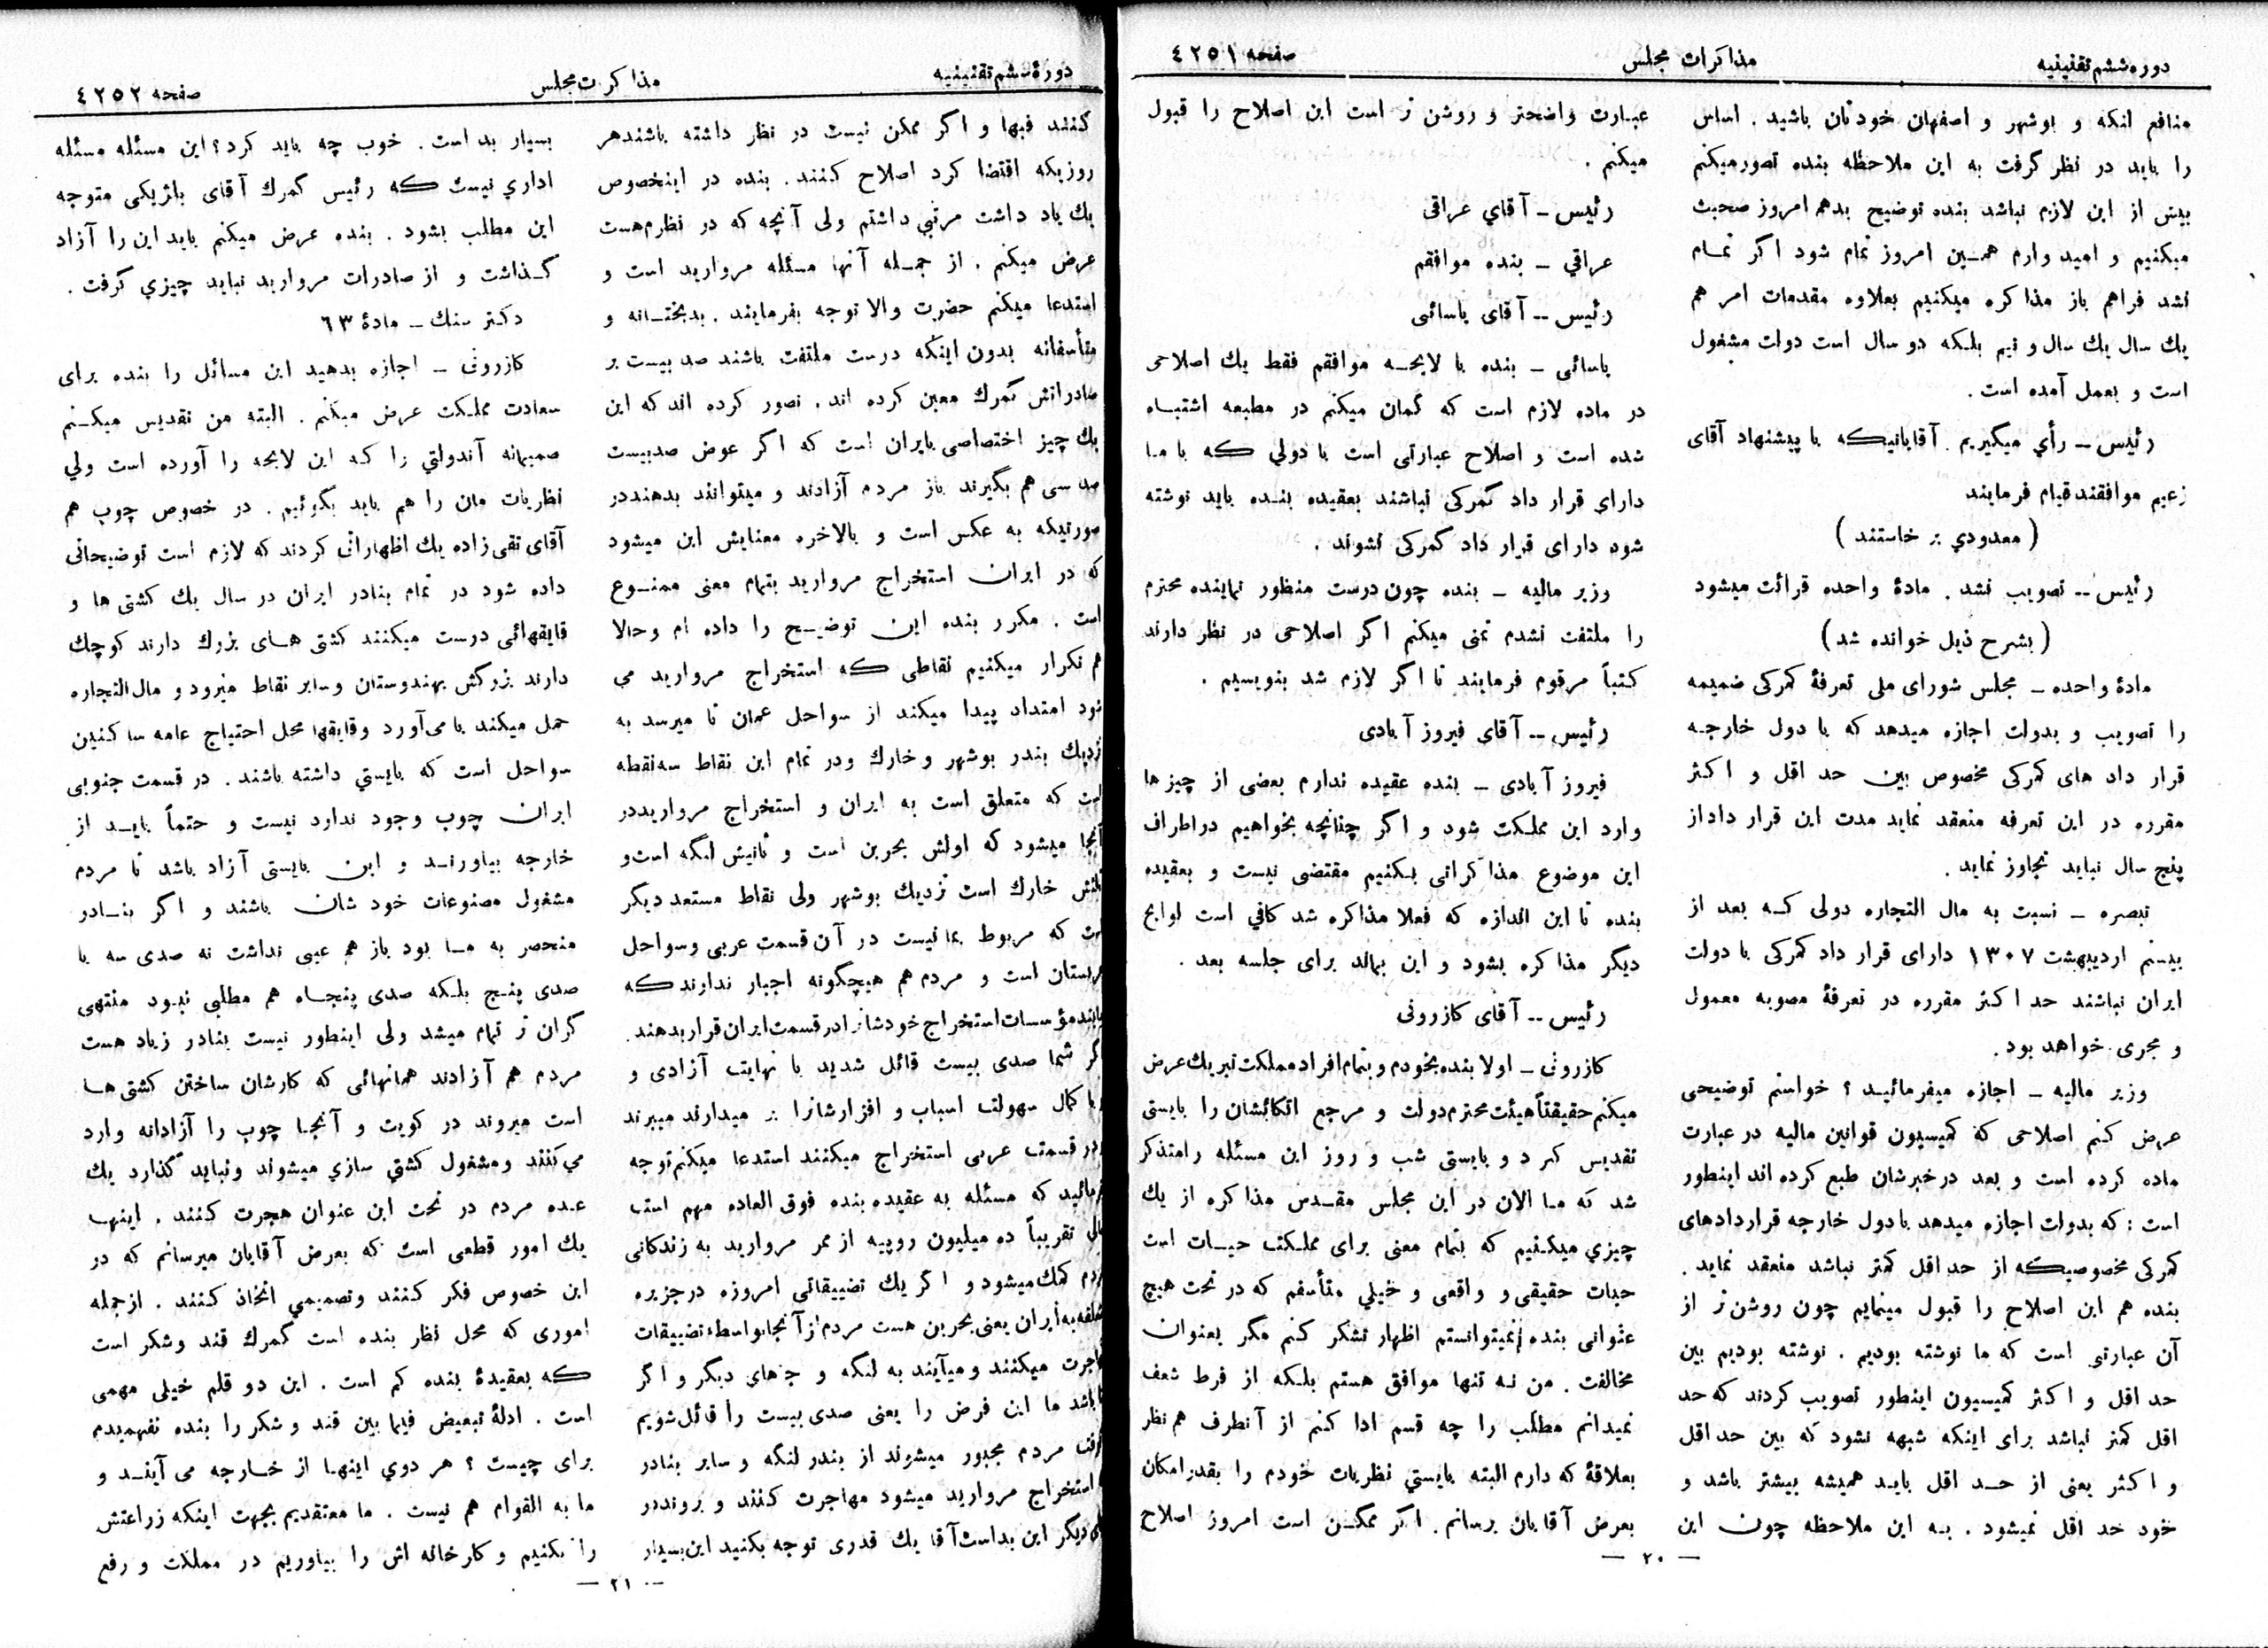 دوره ششم تقنینیه
مذاکرات مجلس
صفحه ٤٢٥١
منافع لنگه و بوشهر و اصفهان خودتان باشید . اساس
را باید در نظر گرفت به این ملاحظه بنده تصور میکنم
بیش از این لازم نباشد بنده توضیح بدهم امروز صحبت
میکنیم و امید وارم همین امروز تمام شود اگر تمام
نشد فراهم باز مذاکره میکنیم بعلاوه مقدمات امر هم
یك سال یك سال و نیم بلکه دو سال است دولت مشغول
است و بعمل آمده است .
رئیس ــ رأی میگیریم . آقایانیکه با پیشنهاد آقای
زعیم موافقند قیام فرمایند
( معدودی بر خاستند )
رئیس -- تصویب نشد . مادۀ واحده قرائت میشود
( بشرح ذیل خوانده شد )
مادۀ واحده ــ مجلس شورای ملی تعرفۀ گمرکی ضمیمه
را تصویب و بدولت اجازه میدهد که با دول خارجه
قرار داد های گمرکی مخصوص بین حد اقل و اکثر
مقرره در این تعرفه منعقد نماید مدت این قرار داد از
پنج سال نباید تجاوز نماید .
تبصره ــ نسبت به مال التجاره دولی که بعد از
بیستم اردیبهشت ١٣٠٧ دارای قرار داد گمرکی با دولت
ایران نباشند حد اکثر مقرره در تعرفۀ مصوبه معمول
و مجری خواهد بود .
وزیر مالیه ــ اجازه میفرمائید ؟ خواستم توضیحی
عرض کنم اصلاحی که کمیسیون قوانین مالیه در عبارت
ماده کرده است و بعد در خبرشان طبع کرده اند اینطور
است : که بدولت اجازه میدهد با دول خارجه قراردادهای
گمرکی مخصوصیکه از حد اقل کمتر نباشد منعقد نماید .
بنده هم این اصلاح را قبول مینمایم چون روشن تر از
آن عبارتی است که ما نوشته بودیم . نوشته بودیم بین
حد اقل و اکثر کمیسیون اینطور تصویب کردند که حد
اقل کمتر نباشد برای اینکه شبهه نشود که بین حد اقل
و اکثر یعنی از حد اقل باید همیشه بیشتر باشد و
خود حد اقل نمیشود . به این ملاحظه چون این
عبارت واضحتر و روشن تر است این اصلاح را قبول
میکنم .
رئیس ــ آقای عراقی
عراقي ــ بنده موافقم
رئیس -- آقای یاسائی
یاسائی ــ بنده با لایحه موافقم فقط یك اصلاحی
در ماده لازم است که گمان میکنم در مطبعه اشتباه
شده است و اصلاح عبارتی است با دولي که با ما
دارای قرار داد گمرکی نباشند بعقیده بنده باید نوشته
شود دارای قرار داد گمرکی نشوند .
وزیر مالیه ــ بنده چون درست منظور نماینده محترم
را ملتفت نشدم تمنی میکنم اگر اصلاحی در نظر دارند
کتباً مرقوم فرمایند تا اگر لازم شد بنویسیم .
رئیس -- آقای فیروز آبادی
فیروز آبادی ــ بنده عقیده ندارم بعضی از چیز ها
وارد این مملکت شود و اگر چنانچه بخواهیم در اطراف
این موضوع مذاکراتی بکنیم مقتضی نیست و بعقیده
بنده تا این اندازه که فعلا مذاکره شد کافي است لوایح
دیگر مذاکره بشود و این بماند برای جلسه بعد .
رئیس -- آقای کازرونی
کازرونی ــ اولا بنده بخودم و بتمام افراد مملکت تبریك عرض
میکنم حقیقتاً هیئت محترم دولت و مرجع اتکائشان را بایستی
تقدیس کرد و بایستی شب و روز این مسئله را متذکر
شد که ما الان در این مجلس مقدس مذاکره از یك
چیزي میکنیم که بتمام معنی برای مملکت حیات است
حیات حقیقی و واقعی و خیلي متأسفم که در تحت هیچ
عنوانی بنده نمیتوانستم اظهار تشکر کنم مگر بعنوان
مخالفت . من نه تنها موافق هستم بلکه از فرط شعف
نمیدانم مطلب را چه قسم ادا کنم از آنطرف هم نظر
بعلاقۀ که دارم البته بایستي نظریات خودم را بقدر امکان
بعرض آقایان برسانم . اگر ممکن است امروز اصلاح
ــ ٢٠ ــ
دورۀ ششم تقنینیه
مذاکرت مجلس
صفحه ٤٢٥٢
کنند فبها و اگر ممکن نیست در نظر داشته باشند هر
روزیکه اقتضا کرد اصلاح کنند . بنده در اینخصوص
یك یاد داشت مرتبي داشتم ولی آنچه که در نظرم هست
عرض میکنم . از جمله آنها مسئله مروارید است و
استدعا میکنم حضرت والا توجه بفرمایند . بدبختانه و
متأسفانه بدون اینکه درست ملتفت باشند صد بیست بر
صادراتش گمرك معین کرده اند . تصور کرده اند که این
یك چیز اختصاصی بایران است که اگر عوض صد بیست
صد سی هم بگیرند باز مردم آزادند و میتوانند بدهند در
صورتیکه به عکس است و بالاخره معنایش این میشود
که در ایران استخراج مروارید بتمام معنی ممنوع
است . مکرر بنده این توضیح را داده ام و حالا
هم تکرار میکنیم نقاطی که استخراج مروارید می
شود امتداد پیدا میکند از سواحل عمان تا میرسد به
نزدیك بندر بوشهر و خارك و در تمام این نقاط سه نقطه
است که متعلق است به ایران و استخراج مروارید در
آنجا میشود که اولش بحرین است و ثانیش لنگه است و
ثالثش خارك است نزدیك بوشهر ولی نقاط مستعد دیگر
است که مربوط بما نیست در آن قسمت عربی و سواحل
عربستان است و مردم هم هیچگونه اجبار ندارند که
بیایند مؤسسات استخراج خودشانرا در قسمت ایران قرار بدهند .
اگر شما صدی بیست قائل شدید با نهایت آزادی و
با کمال سهولت اسباب و افزارشانرا بر میدارند میبرند
در قسمت عربی استخراج میکنند استدعا میکنم توجه
فرمائید که مسئله به عقیده بنده فوق العاده مهم است
سالی تقریباً ده میلیون روپیه از ممر مروارید به زندگانی
مردم کمك میشود و اگر یك تضییقاتی امروزه در جزیره
متعلقه به ایران یعنی بحرین هست مردم از آنجا بواسطه تضییقات
مهاجرت میکنند و میآیند به لنگه و جاهای دیگر و اگر
بنا باشد ما این فرض را یعنی صدی بیست را قائل شویم
آنوقت مردم مجبور میشوند از بندر لنگه و سایر بنادر
که استخراج مروارید میشود مهاجرت کنند و بروند در
جای دیگر این بد است آقا یك قدری توجه بکنید این بسیار
بسیار بد است . خوب چه باید کرد ؟ این مسئله مسئله
اداري نیست که رئیس گمرك آقای بلژیکی متوجه
این مطلب بشود . بنده عرض میکنم باید این را آزاد
گذاشت و از صادرات مروارید نباید چیزي گرفت .
دکتر سنك ــ مادۀ ٦٣
کازرونی ــ اجازه بدهید این مسائل را بنده برای
سعادت مملکت عرض میکنم . البته من تقدیس میکنم
صمیمانه آندولتي را که این لایحه را آورده است ولي
نظریات مان را هم باید بگوئیم . در خصوص چوب هم
آقای تقی زاده یك اظهاراتی کردند که لازم است توضیحاتی
داده شود در تمام بنادر ایران در سال یك کشتی ها و
قایقهائی درست میکنند کشتی های بزرك دارند کوچك
دارند بزرگش بهندوستان و سایر نقاط میرود و مال التجاره
حمل میکند یا می آورد و قایقها محل احتیاج عامه ساکنین
سواحل است که بایستي داشته باشند . در قسمت جنوبی
ایران چوب وجود ندارد نیست و حتماً باید از
خارجه بیاورند و این بایستی آزاد باشد تا مردم
مشغول مصنوعات خود شان باشند و اگر بنادر
منحصر به ما بود باز هم عیبی نداشت نه صدی سه یا
صدی پنج بلکه صدی پنجاه هم مطلبی نبود منتهی
گران تر تمام میشد ولی اینطور نیست بنادر زیاد هست
مردم هم آزادند همانهائی که کارشان ساختن کشتی ها
است میروند در کویت و آنجا چوب را آزادانه وارد
می کنند و مشغول کشتي سازي میشوند و نباید گذارد یك
عده مردم در تحت این عنوان هجرت کنند . اینها
یك امور قطعی است که بعرض آقایان میرسانم که در
این خصوص فکر کنند و تصمیمي اتخاذ کنند . از جمله
اموری که محل نظر بنده است گمرك قند و شکر است
که بعقیدۀ بنده کم است . این دو قلم خیلی مهمی
است . ادلۀ تبعیض فیما بین قند و شکر را بنده نفهمیدم
برای چیست ؟ هر دوي اینها از خارجه می آیند و
ما به القوام هم نیست . ما معتقدیم بجهت اینکه زراعتش
را بکنیم و کارخانه اش را بیاوریم در مملکت و رفع
ــ ٢١ ــ